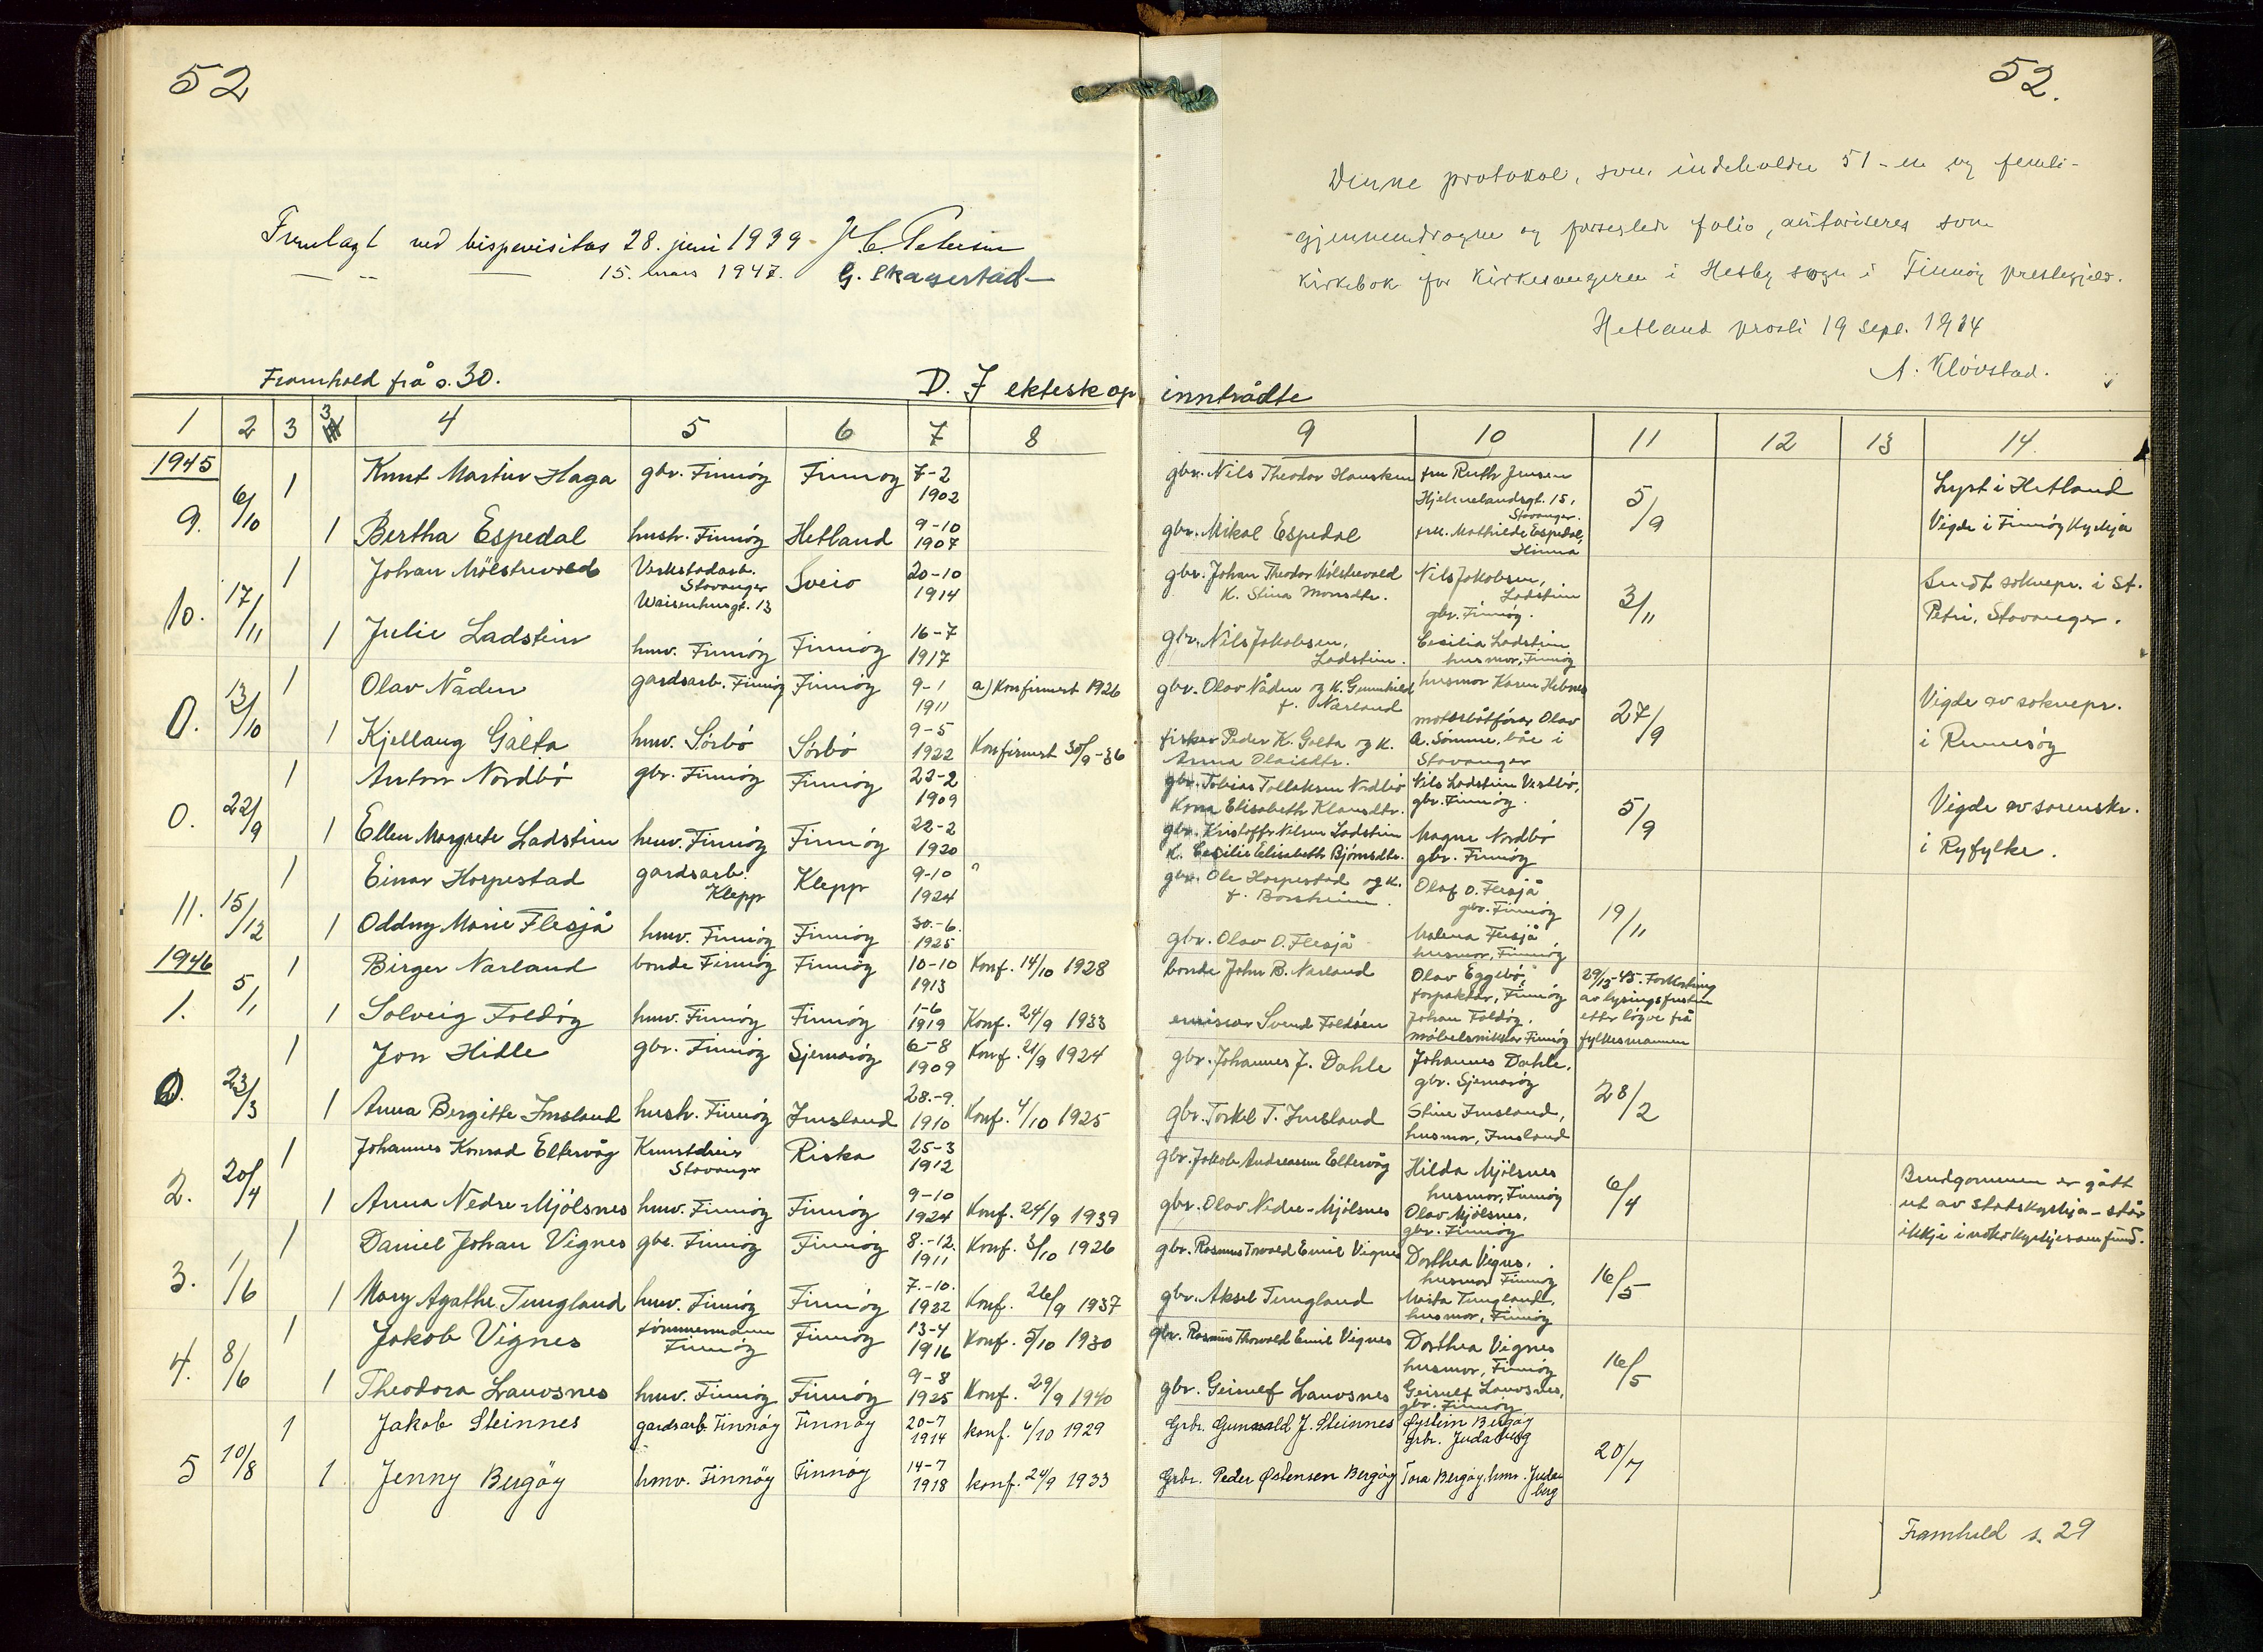 52
52.
Denne protokol, som indeholder 51 - en og femti -
gjennemdragne og forseglede folio, autoriseres som
kirkebok for kirkesangeren i Hesby sogn i Finnøy prestegjeld.
Hetland prosti 19 sept. 1934
A. Klövstad.
Framlagt ved bispevisitas 28. juni 1939
15. mars 1947. G. Skagestad
Framhald frå s. 30.
D. I ekteskap inntrådte
1 2 3 3 4 5 6 7 8 9 10 11 12 13 14.
1945
9. 6/10 1 Knut Martin Haga gbr. Finnöy Finnöy 7-2 1902 gbr. Nils Theodor Hausken fru Ruth Jensen Hjelmelandsgt. 15, Stavanger. 5/9 Lyst i Hetland
1 Bertha Espedal hush. Finnöy Hetland 9-10 1907 gbr. Mikal Espedal frk. Mathilde Espedal, Hinna Vigde i Finnöy Kyrkja
10. 17/11 1 Johan Mölstrevold Verkstadarb. Stavanger Waisenhusgt. 13 Sveio 20-10 1914 gbr. Johan Theodor Mölstrevold K. Stina Monsdtr. Nils Jakobsen, Ladstein gbr. Finnöy. 3/11 Sendt soknepr. i St. Petri, Stavanger.
1 Julie Ladstein hmv. Finnöy Finnöy 16-7 1917 gbr. Nils Jakobsen, Ladstein. Cecilia Ladstein husmor, Finnöy
0. 13/10 1 Olav Nåden gardsarb. Finnöy Finnöy 9-1 1911 a) Konfirmert 1926 gbr. Olav Nåden og K. Gunnhild f. Narland husmor Karen Hebnes 27/9 Vigde av soknepr.
1 Kjellaug Galta hmv. Sörbö Sörbö 9-5 1922 Konfirmert 30/9-36 fisker Peder K. Galta og K. Anna Olaisdtr. motorbåtförar Olav A. Sömme, båe i Stavanger i Rennesöy
0. 22/9 1 Anton Nordbö gbr. Finnöy Finnöy 22-2 1909 gbr. Tobias Tollaksen Nordbö Kona Elisabeth Klausdtr. Nils Ladstein Vestbö, gbr. Finnöy. 5/9 Vigde av sorenskr.
1 Ellen Margrete Ladstein hmv. Finnöy Finnöy 22-2 1920 gbr. Kristoffer Nilsen Ladstein K. Cecilie Elisabeth Björnsdtr. Magne Nordbö gbr. Finnöy i Ryfylke.
11. 15/12 1 Einar Horpestad gardsarb. Klepp Klepp 9-10 1924 gbr. Ole Horpestad og K. f. Borsheim. Olaf O. Flesjå gbr. Finnöy 19/11
1 Oddny Marie Flesjå hmv. Finnöy Finnöy 30.-6. 1925 gbr. Olav O. Flesjå Malena Flesjå husmor, Finnöy
1946
1. 5/1 1 Birger Narland bonde Finnöy Finnöy 10-10 1913 Konf. 14/10 1928 bonde John B. Narland Olav Eggebö, forpaktar, Finnöy 29/12-45. Forkorting av lysingsfristen
1 Solveig Foldöy hmv. Finnöy Finnöy 1-6 1919 Konf. 24/9 1933 emissær Svend Foldöen Johan Foldöy, möbelsnikkar Finnöy etter löyve frå fylkesmannen
0. 23/3 1 Jon Hidle gbr. Finnöy Sjernaröy 6-8 1909 Konf. 21/9 1924 gbr. Johannes J. Dahle Johannes Dahle, gbr. Sjernaröy 28/2
1 Anna Bergitte Imsland hush. Finnöy Imsland 28.-9. 1910 Konf. 4/10 1925 gbr. Torkel T. Imsland Stine Imsland, husmor, Imsland
2. 20/4 1 Johannes Konrad Eltervåg Stavanger Riska 25-3 1912 gbr. Jakob Andreassen Eltervåg Hilda Mjölsnes husmor, Finnöy 6/4 Brudgommen er gått
1 Anna Nedre-Mjölsnes hmv. Finnöy Finnöy 9-10 1924 Konf. 24/9 1939 gbr. Olav Nedre-Mjölsnes Olav Mjölsnes, gbr. Finnöy ut av statskyrkja - står ikkje i noko kyrkjesamfund.
3. 1/6 1 Daniel Johan Vignes gbr. Finnöy Finnöy 8.-12. 1911 Konf. 3/10 1926 gbr. Rasmus Torvald Emil Vignes Dorthea Vignes, husmor Finnöy 16/5
1 Mary Agathe Tungland hmv. Finnöy Finnöy 7.-10. 1922 Konf. 26/9 1937 gbr. Aksel Tungland Marta Tungland, husmor, Finnöy
4. 8/6 1 Jakob Vignes tömmermann Finnöy Finnöy 13-4 1916 Konf. 5/10 1930 gbr. Rasmus Thorvald Emil Vignes Dorthea Vignes husmor, Finnöy 16/5
1 Theodora Lauvsnes hmv. Finnöy Finnöy 9-8 1925 Konf. 29/9 1940 gbr. Geirulf Lauvsnes Geirulf Lauvsnes, gbr. Finnöy
5 10/8 1 Jakob Steinnes gardsarb. Finnöy Finnöy 20-7 1914 konf. 6/10 1929 Grbr. Gunvald J. Steinnes Øystein Bergöy grbr. Judaberg 20/7
1. Jenny Bergöy hmv. Finnöy Finnöy 14-7 1918 konf. 24/9 1933 Grbr. Peder Østensen Bergöy Tora Bergöy, hmr. Judaberg
Framhald s. 29